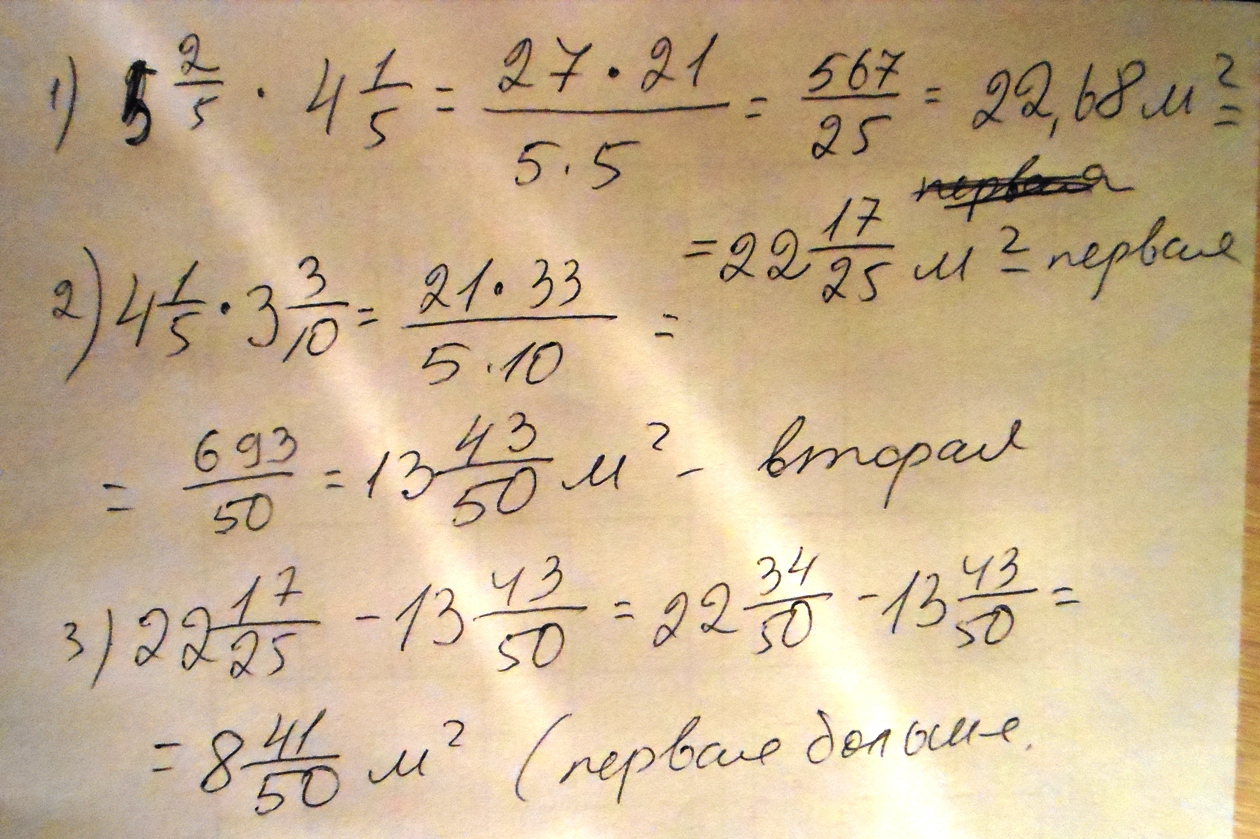 1) 5 2/5 · 4 1/5 = 27·21/5·5 = 567/25 = 22,68 м² =
= 22 17/25 м² - первая
2) 4 1/5 · 3 3/10 = 21·33/5·10 =
= 693/50 = 13 43/50 м² - вторая
3) 22 17/25 - 13 43/50 = 22 34/50 - 13 43/50 =
= 8 41/50 м² (первая больше.